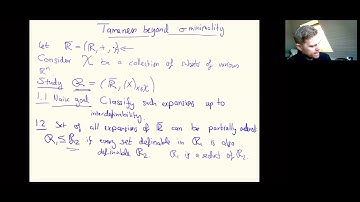 Tameness beyond o-minimality
Let ℝ̄ = (ℝ, +, ·) ←
Consider X be a collection of subsets of various
ℝⁿ
Study R = (ℝ̄, (X)_{X∈X})
1.1 Naive goal: Classify such expansions up to
interdefinability.
1.2 Set of all expansions of ℝ̄ can be partially ordered
R₁ ≤ R₂ if every set definable in R₁ is also
definable R₂ R₁ is a reduct of R₂.